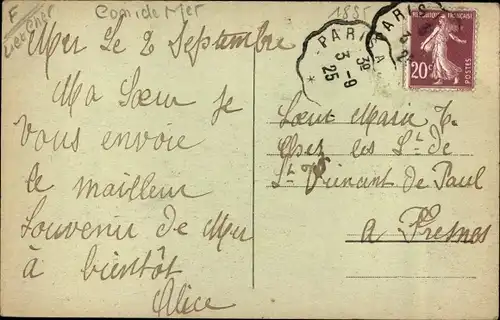 F
Com de Mer
1885
Mer Le 2 Septembre
Ma Sœur je
Vous envoie
le mailleur
Souvenir de Mer
à bientôt
Alice
PARIS A
3D
3-9
25
PARIS
REPUBLIQUE FRANÇAISE
20c
POSTES
Sœur Marie T.
Chez les Sts de
St Vincent de Paul
a Fresnes